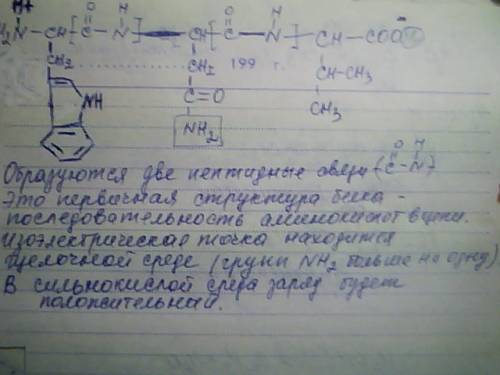 H+ O H O H
H₂N-CH-[C-N]-CH-[C-N]-CH-COO⁻
CH₂ CH₂ 199 г. CH-CH₃
NH C=O CH₃
NH₂
Образуются две пептидные связи (-C-N-) O H
Это первичная структура белка -
последовательность аминокислот в цепи.
Изоэлектрическая точка находится
щелочной среде (групп NH₂ больше на одну)
В сильнокислой среда заряд будет
положительный.